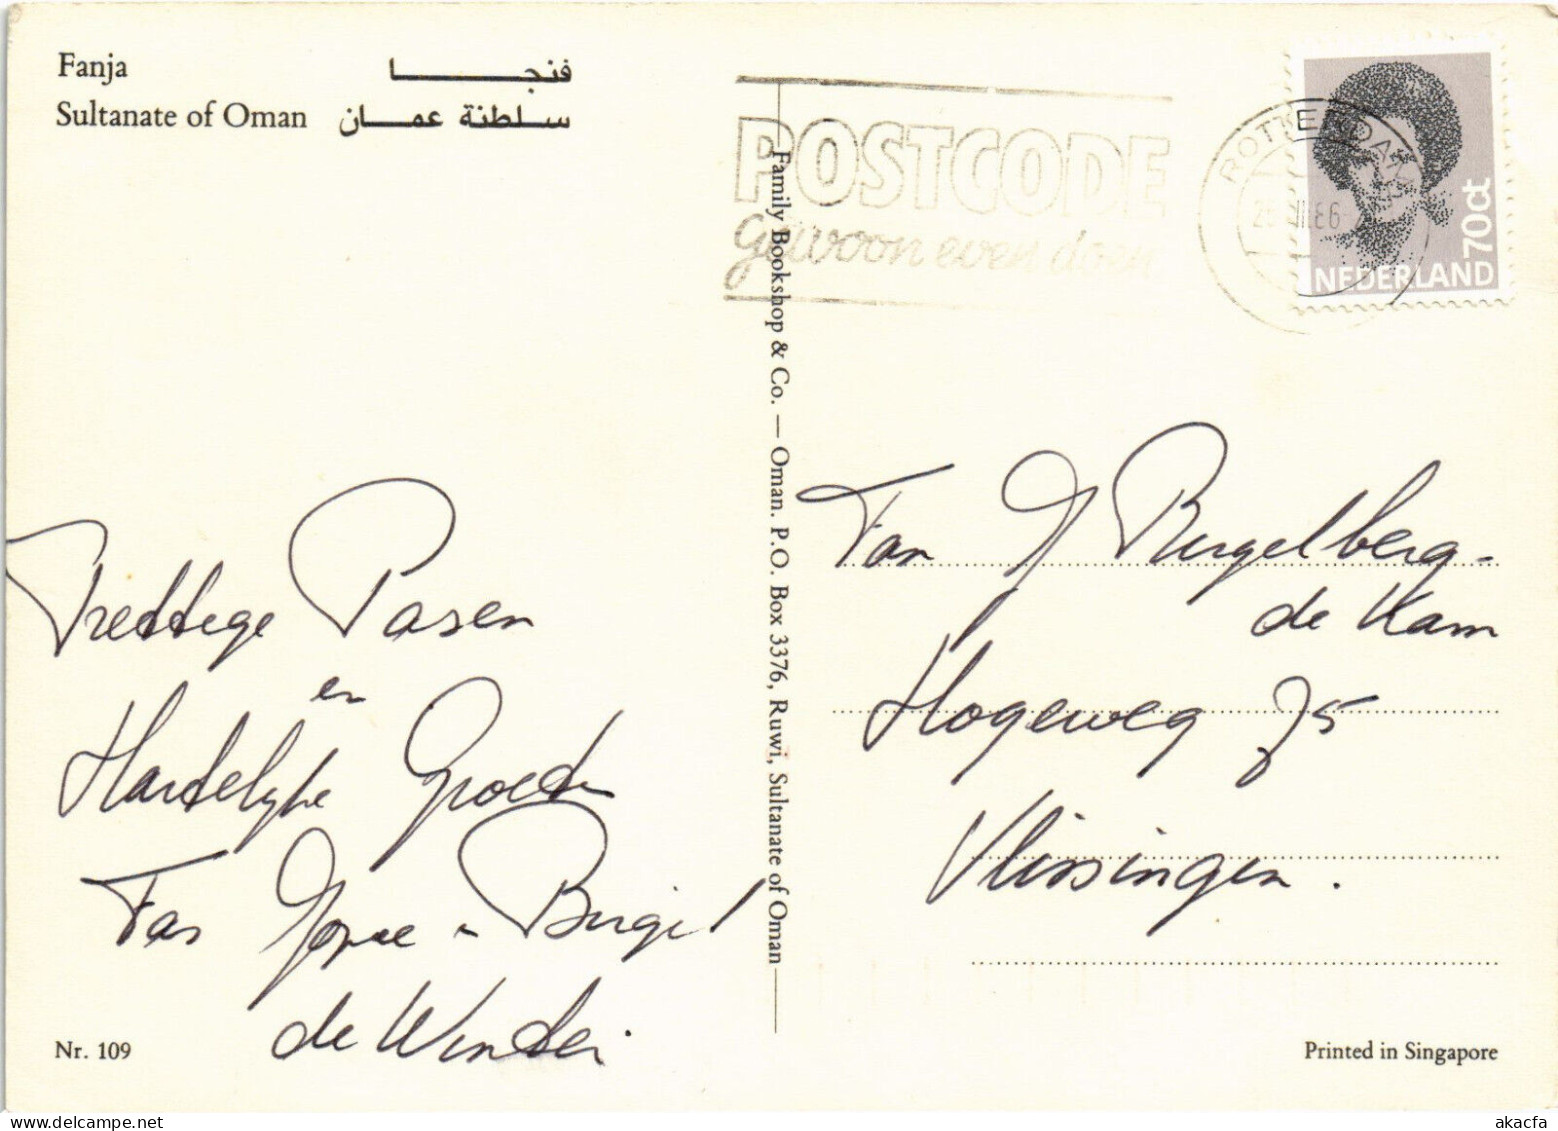 Fanja
فنجا
Sultanate of Oman
سلطنة عمان
POSTCODE
gewoon even doen
ROTTERDAM
70ct
NEDERLAND
Family Bookshop & Co. — Oman. P.O. Box 3376, Ruwi, Sultanate of Oman
Prettige Pasen
en
Hartelijke Groeten
Fam
de Winter
Fam J Burgelberg-
de Kam
Hogeweg 75
Vlissingen.
Nr. 109
Printed in Singapore
akacfa
www.delcampe.net